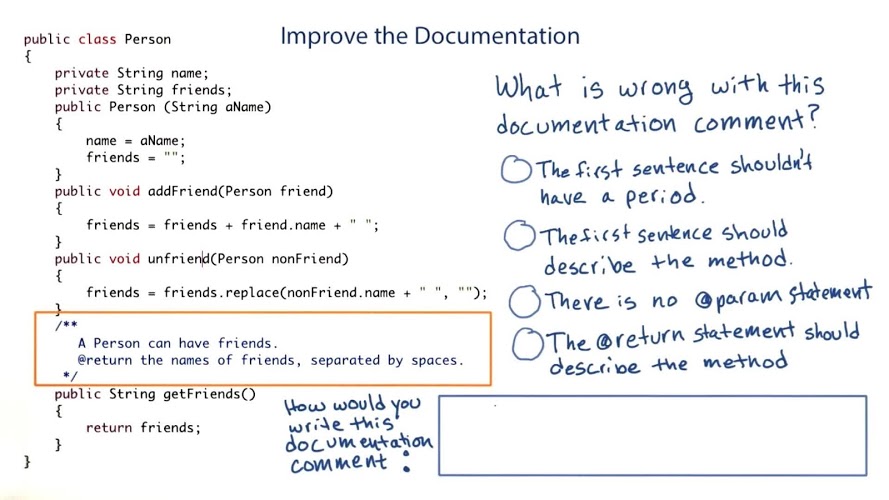 Improve the Documentation
public class Person
{
private String name;
private String friends;
public Person (String aName)
{
name = aName;
friends = "";
}
public void addFriend(Person friend)
{
friends = friends + friend.name + " ";
}
public void unfriend(Person nonFriend)
{
friends = friends.replace(nonFriend.name + " ", "");
}
/**
A Person can have friends.
@return the names of friends, separated by spaces.
*/
public String getFriends()
{
return friends;
}
}
What is wrong with this
documentation comment?
The first sentence shouldn't
have a period.
The first sentence should
describe the method.
There is no @param statement
The @return statement should
describe the method
How would you
write this
documentation
comment: